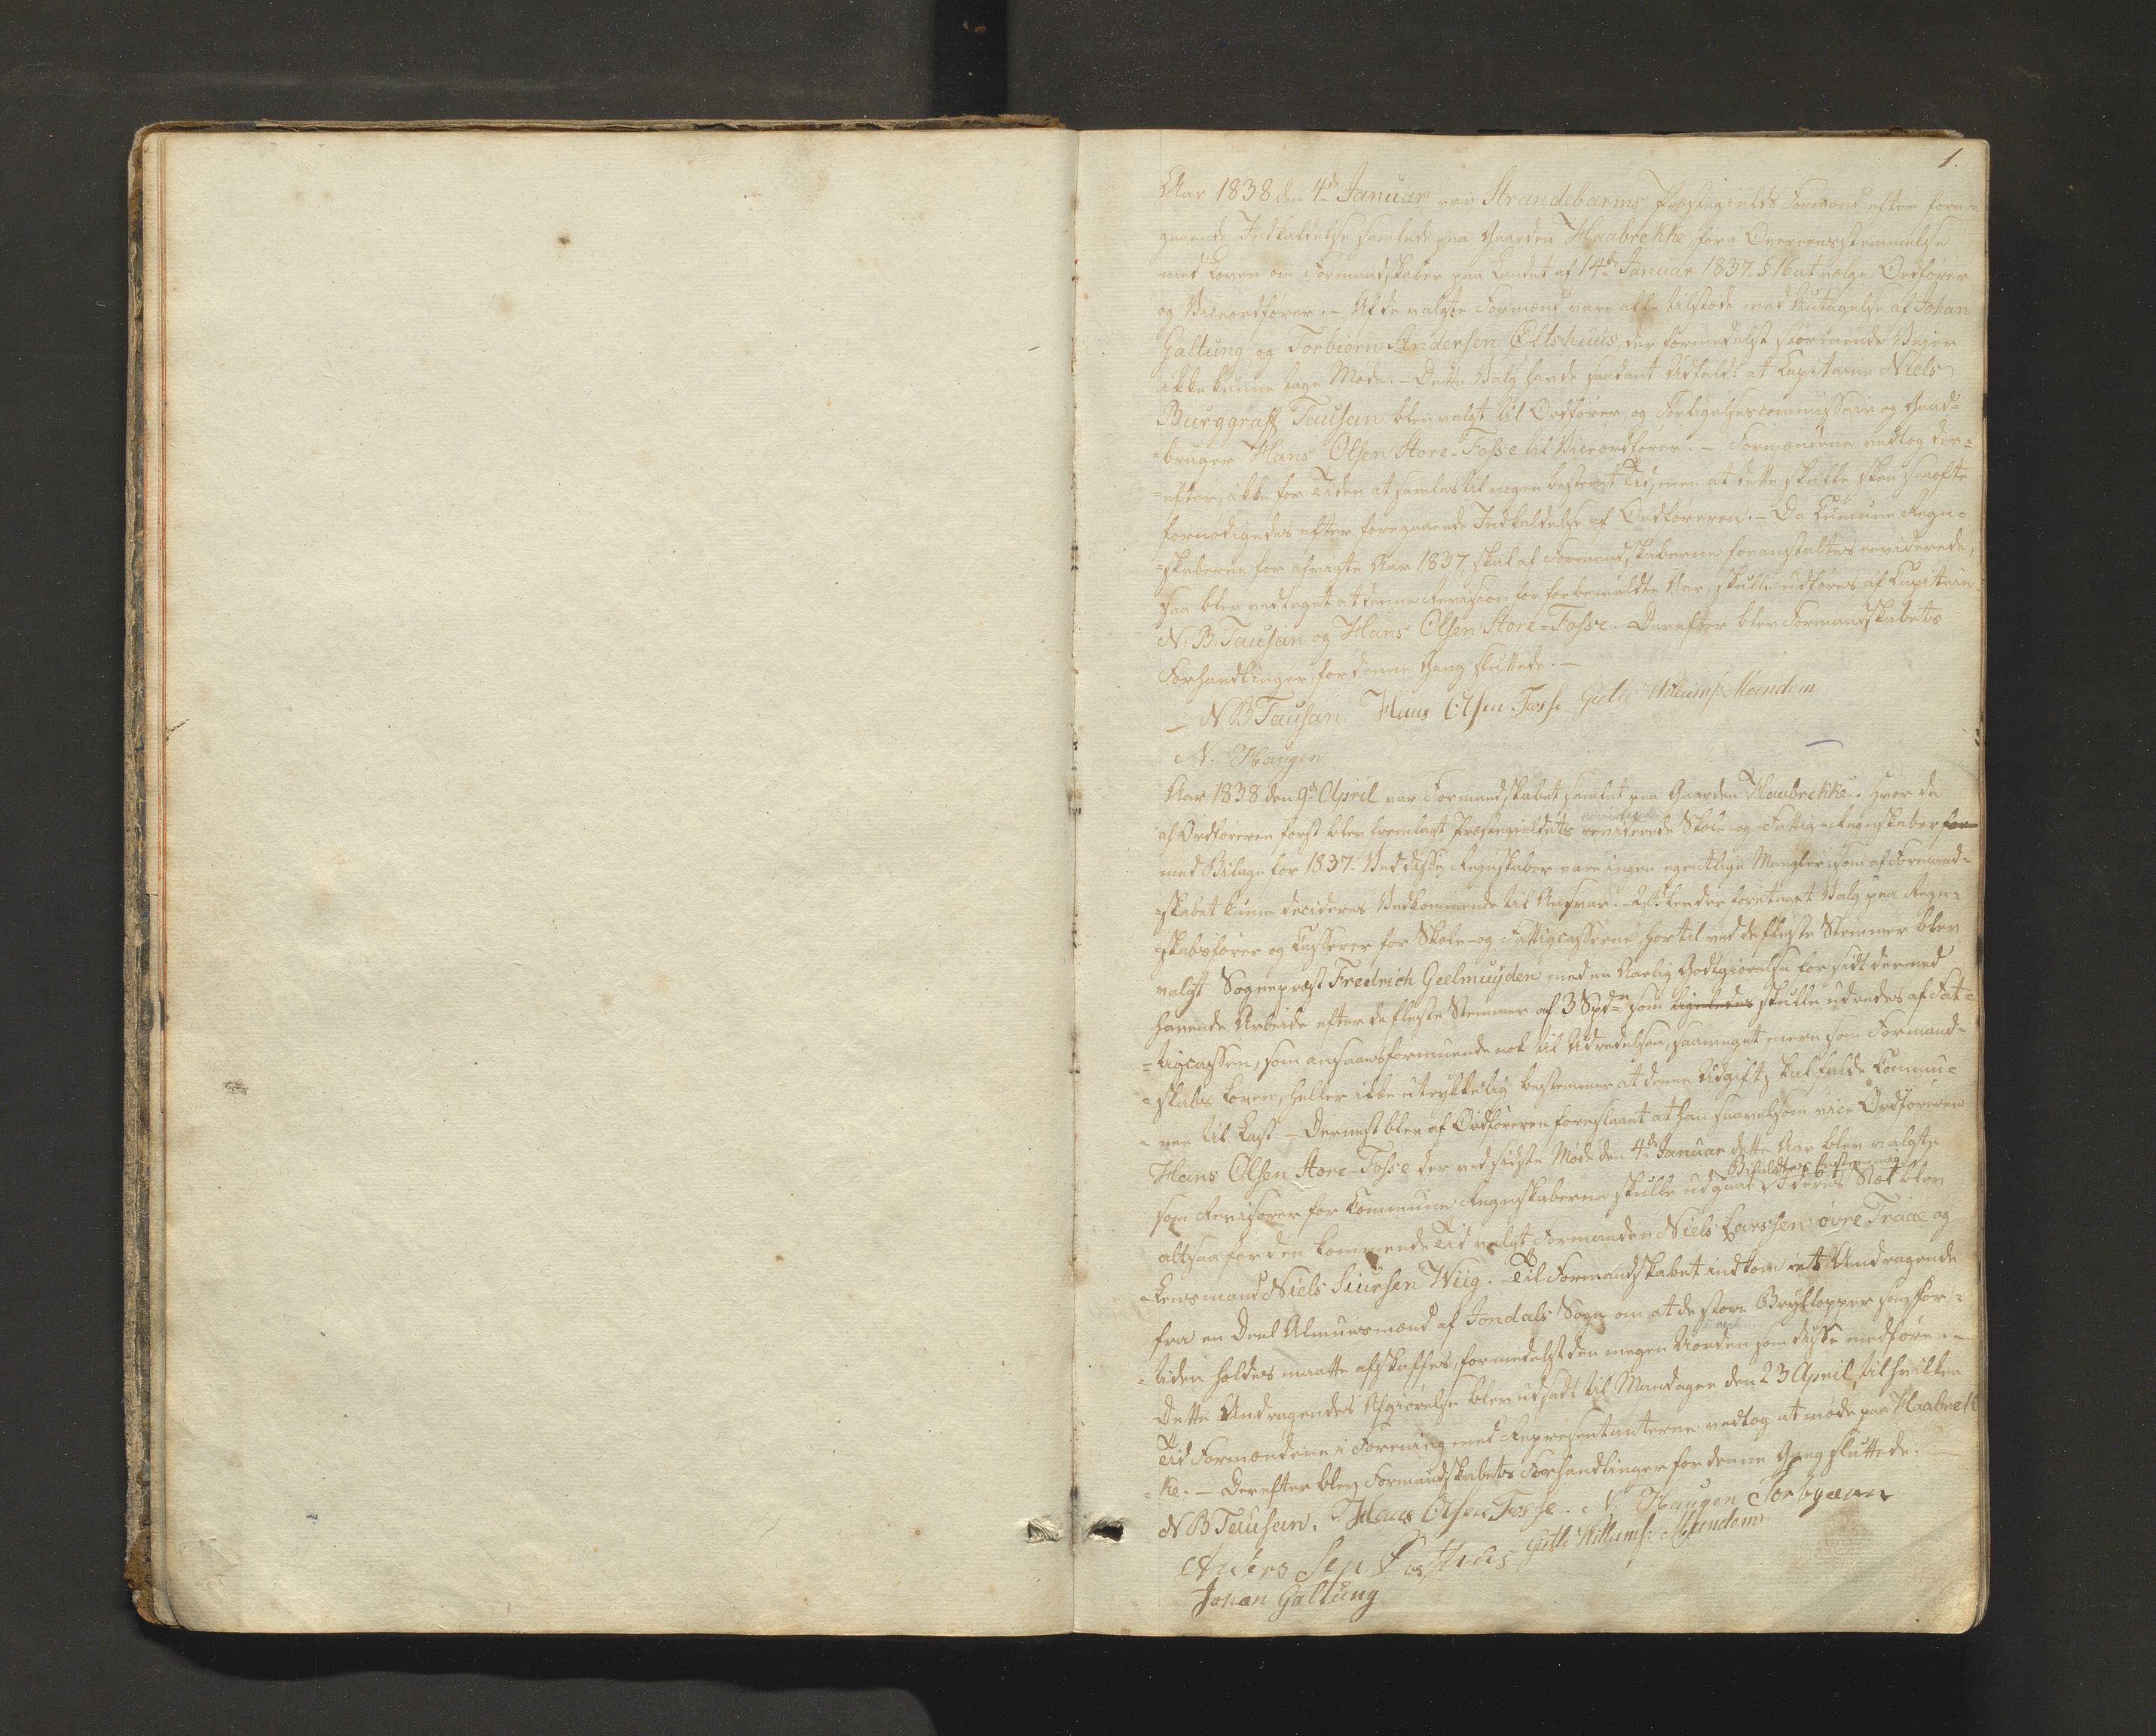 1.
Aar 1838 den 4de Januar var Strandebarms Præstegjelds Formænd efter fore-
gaaende Indkaldelse samlede paa Gaarden Haabrekke for i Overeensstemmelse
med Loven om Formandskaber paa Landet af 14de Januar 1837. § 16 at vælge Ordfører
og Viceordfører. - Af de valgte Formænd vare alle tilstede med Undtagelse af Johan
Galtung og Torbiørn Andersen Østhuus, der formedelst stormende Veier
ikke kunne tage Møde. - Dette Valg havde saadant Udfald: at Capitaine Niels
Burggraff Tausan blev valgt til Ordfører, og Forligelsescommissair og Gaard-
-bruger Hans Olsen Store-Fosse til Viceordfører. - Formændene vedtog der-
-efter, ikke for Tiden at samles til nogen bestemt Tid, men at dette skulle skee saaofte
fornødigedes efter foregaaende Indkaldelse af Ordføreren. - Da Kumune Regn-
-skaberne for afvigte Aar 1837, skal af Formandskaberne foranstaltes reviderede,
saa blev vedtaget at denne Revision for forbemeldte Aar, skulle udføres af Capitain
N. B. Tausan og Hans Olsen Store-Fosse. Derefter blev Formandskabets
Forhandlinger for denne Gang sluttede. -
- N B Tausan Hans Olsen Fosse Gutte Willumsen Mundem
N. Haugen
Aar 1838 den 9de April var Formandskabet samlet paa Gaarden Haabrekke. Hvor da
af Ordføreren først blev fremlagt Præstegieldets reviderede Skole- og Fattig-Regnskaber for
med Bilage for 1837. Ved disse Regnskaber vare ingen egentlige Mangler, som af Formand-
-skabet kunne decideres Vedkommende til Ansvar. - blev der foretaget Valg paa Regn-
-skabsfører og Kasserer for Skole- og Fattigcasserne, hertil ved de fleste Stemmer blev
valgt Sognepræst Fredrich Geelmuyden med en Aarlig Godtgiørelse for sidt dermed
havende Arbeide efter de fleste Stemmer af 3 Spdr som ligeledes skulle udredes af Fat-
-tigcassen, som ansaaes formuende nok til Udredelsen, saameget mere som Formand-
-skabs Loven, heller ikke udtrykkelig bestemmer at denne Udgift skal falde Commu-
-nen til Last. - Dernest blev af Ordføreren foreslaaet at han saavelsom vice Ordføreren
Hans Olsen Store-Fosse der ved sidste Møde den 4de Januar dette Aar blev valgte
som Revisorer for Commune Regnskaberne skulle udgaae. I deres Sted blev
altsaa for den kommende Tid valgt Formanden Niels Larssen øvre Traae og
Lensmand Niels Siursen Wiig. - Til Formandskabet indkom et Andragende
fra en Deel Almuesmænd af Jondals Sogn om at de store Brylløpper som for-
-tiden holdes maatte afskaffes, formedelst den megen Uorden som disse medføre. -
Dette Andragendes Afgiørelse blev udsadt til Mandagen den 23 April, til hvilken
Tid Formændene i Forening med Repræsentanterne vedtog at møde paa Haabrek-
-ke. - Derefter blev Formandskabets Forhandlinger for denne Gang sluttede. -
N B Tausan. Hans Olsen Fosse. N. Haugen Torbgøren
Anders sen Østhus Gutte Willums. Mundem
Johan Galtung